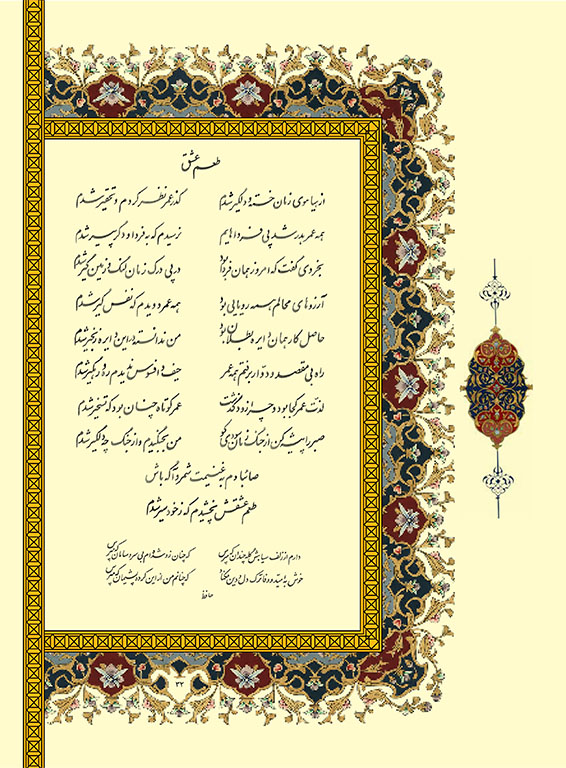 طعم عشق
از هیاهوی زمان خسته و دلگیر شدم گذر عمر نظر کردم و تحقیر شدم
همه عمر بدر شد پی فردایم نرسیدم که به فردا و دگر پیر شدم
بخردی گفت که امروز همان فردا بود در پی درک زمان لنگ و زمین گیر شدم
آرزوهای محالم همه رویایی بود همه عمر دویدم که نفس گیر شدم
حاصل کار همان دایره بطلان بود من ندانسته در این دایره زنجیر شدم
راه بی مقصد و دوار برفتم همه عمر حیف و افسوس ندیدم ره و درگیر شدم
لذت عمر کجا بود و چه زود گذشت عمر کوتاه چنان بود که تسخیر شدم
صبر را پیشه کن از جنگ زمان من بجنگیدم و از جنگ چه دلگیر شدم
صائبا دم به غنیمت شمر و آگه باش
طعم عشقش بچشیدم که ز خود سیر شدم
دارم از زلف سیاهش گله چندان که مپرس که چنان زو شده‌ام بی سر و سامان که مپرس
کس به امید وفا ترک دل و دین مکناد که چنانم من از این کرده پشیمان که مپرس
حافظ
۳۳